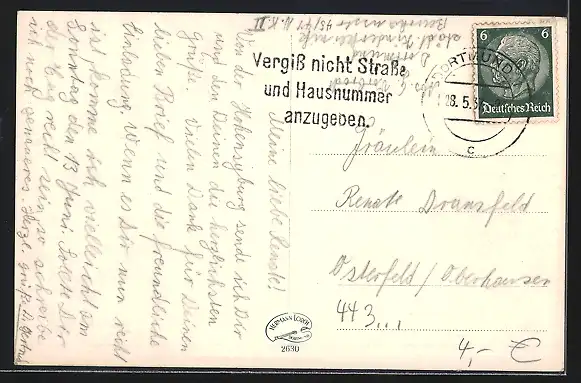 Meine liebe Renate!
Von der Hohensyburg send ich Dir
und den Deinen die herzlichsten
Grüße. Vielen Dank für Deinen
lieben Brief und die freundliche
Einladung. Wenn es Dir nun recht
ist, komme ich vielleicht am
Sonntag den 13 Juni. Sollte Dir
der Tag recht sein so schreibe
ich noch genaueres. Herzl. Grüße
Städt. Kinderklinik
Dortmund
Vergiß nicht Straße
und Hausnummer
anzugeben.
DORTMUND
28.5.3
c
6 6
Deutsches Reich
Fräulein
Renate Dransfeld
Osterfeld / Oberhausen
443...
4,- €
HERMANN LORCH
2630